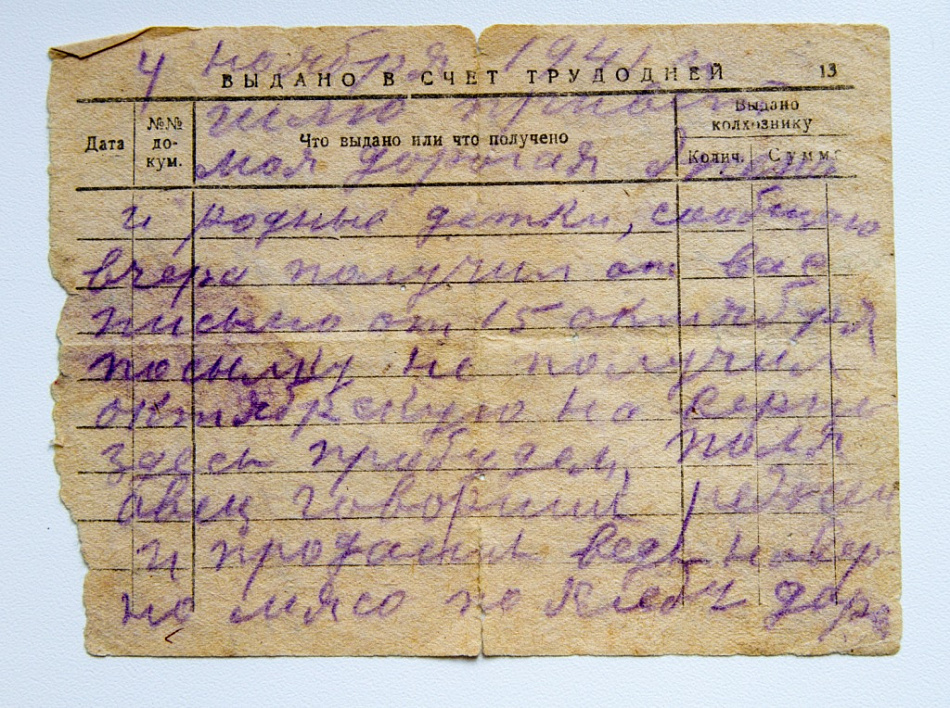 4 ноября 1941 г.
ВЫДАНО В СЧЕТ ТРУДОДНЕЙ 13
шлю привет
Дата №№ до-кум. Что выдано или что получено Выдано колхознику Колич. Сумма
моя дорогая
и родные детки, сообщаю
вчера получил от вас
письмо от 15 октября
посылку не получил
октябрскую но верно
здесь прибудем, поля
авец говорил
и продашь ведь навер
но мясо по хлебу доро